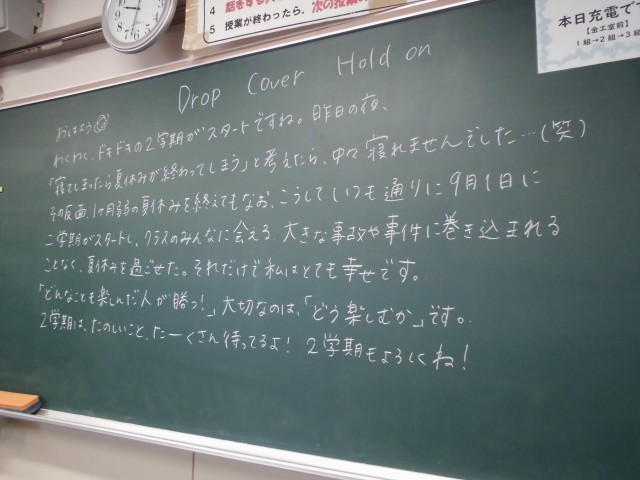 4 話をする人
5 授業が終わったら、次の授業
本日充電で
【金工室前】
1組→2組→3組
Drop Cover Hold on
おはよう
わくわく、ドキドキの2学期がスタートですね。昨日の夜、
「寝てしまったら夏休みが終わってしまう」と考えたら、中々寝れませんでした…(笑)
その反面、1ヶ月弱の夏休みを終えてもなお、こうしていつも通りに9月1日に
二学期がスタートし、クラスのみんなに会える。大きな事故や事件に巻き込まれる
ことなく、夏休みを過ごせた。それだけで私はとても幸せです。
「どんなことも楽しんだ人が勝つ!」大切なのは、「どう楽しむか」です。
2学期は、たのしいこと、たーくさん待ってるよ! 2学期もよろしくね!